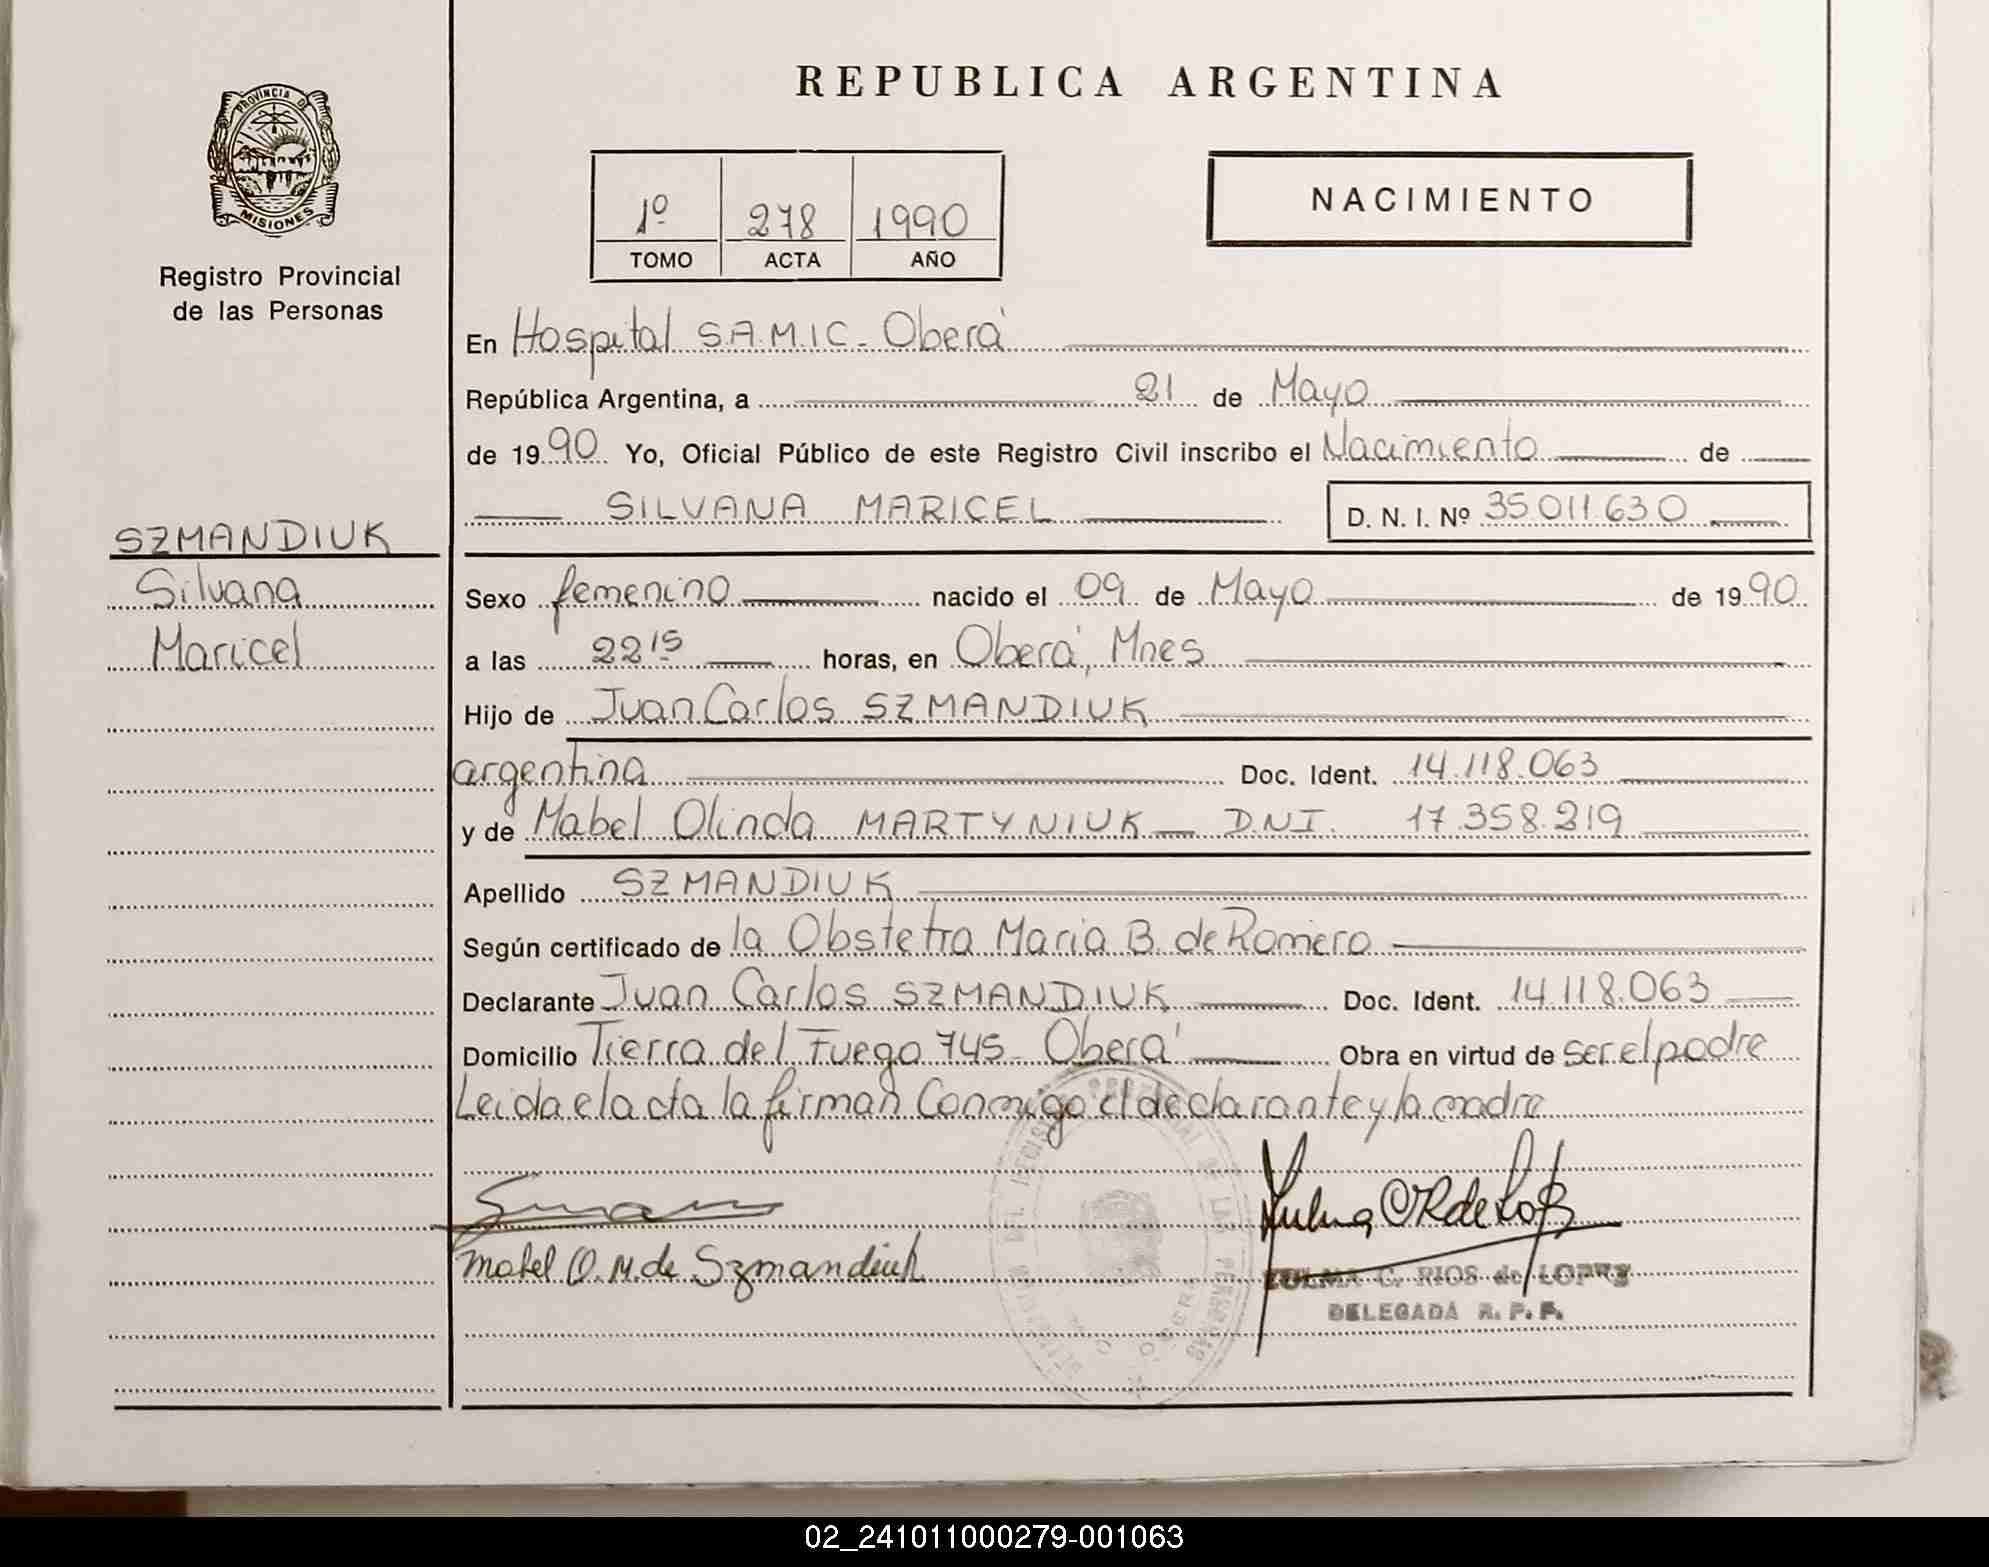 REPUBLICA ARGENTINA
PROVINCIA DE
MISIONES
Registro Provincial
de las Personas
1º 278 1990
TOMO ACTA AÑO
NACIMIENTO
En Hospital S.A.M.I.C. - Oberá
República Argentina, a 21 de Mayo
de 1990 Yo, Oficial Público de este Registro Civil inscribo el Nacimiento de
SILVANA MARICEL D. N. I. Nº 35.011.630
SZMANDIUK
Silvana
Maricel
Sexo femenino nacido el 09 de Mayo de 1990
a las 22 15 horas, en Oberá, Mnes
Hijo de Juan Carlos SZMANDIUK
argentina Doc. Ident. 14.118.063
y de Mabel Olinda MARTYNIUK - D.N.I. 17.358.219
Apellido SZMANDIUK
Según certificado de la Obstetra Maria B. de Romero
Declarante Juan Carlos SZMANDIUK Doc. Ident. 14.118.063
Domicilio Tierra del Fuego 745 - Oberá Obra en virtud de ser el padre
Leida el acta la firman conmigo el declarante y la madre
Mabel O. M. de Szmandiuk
ZULMA C. RIOS de LOPEZ
DELEGADA R. P. P.
02_241011000279-001063